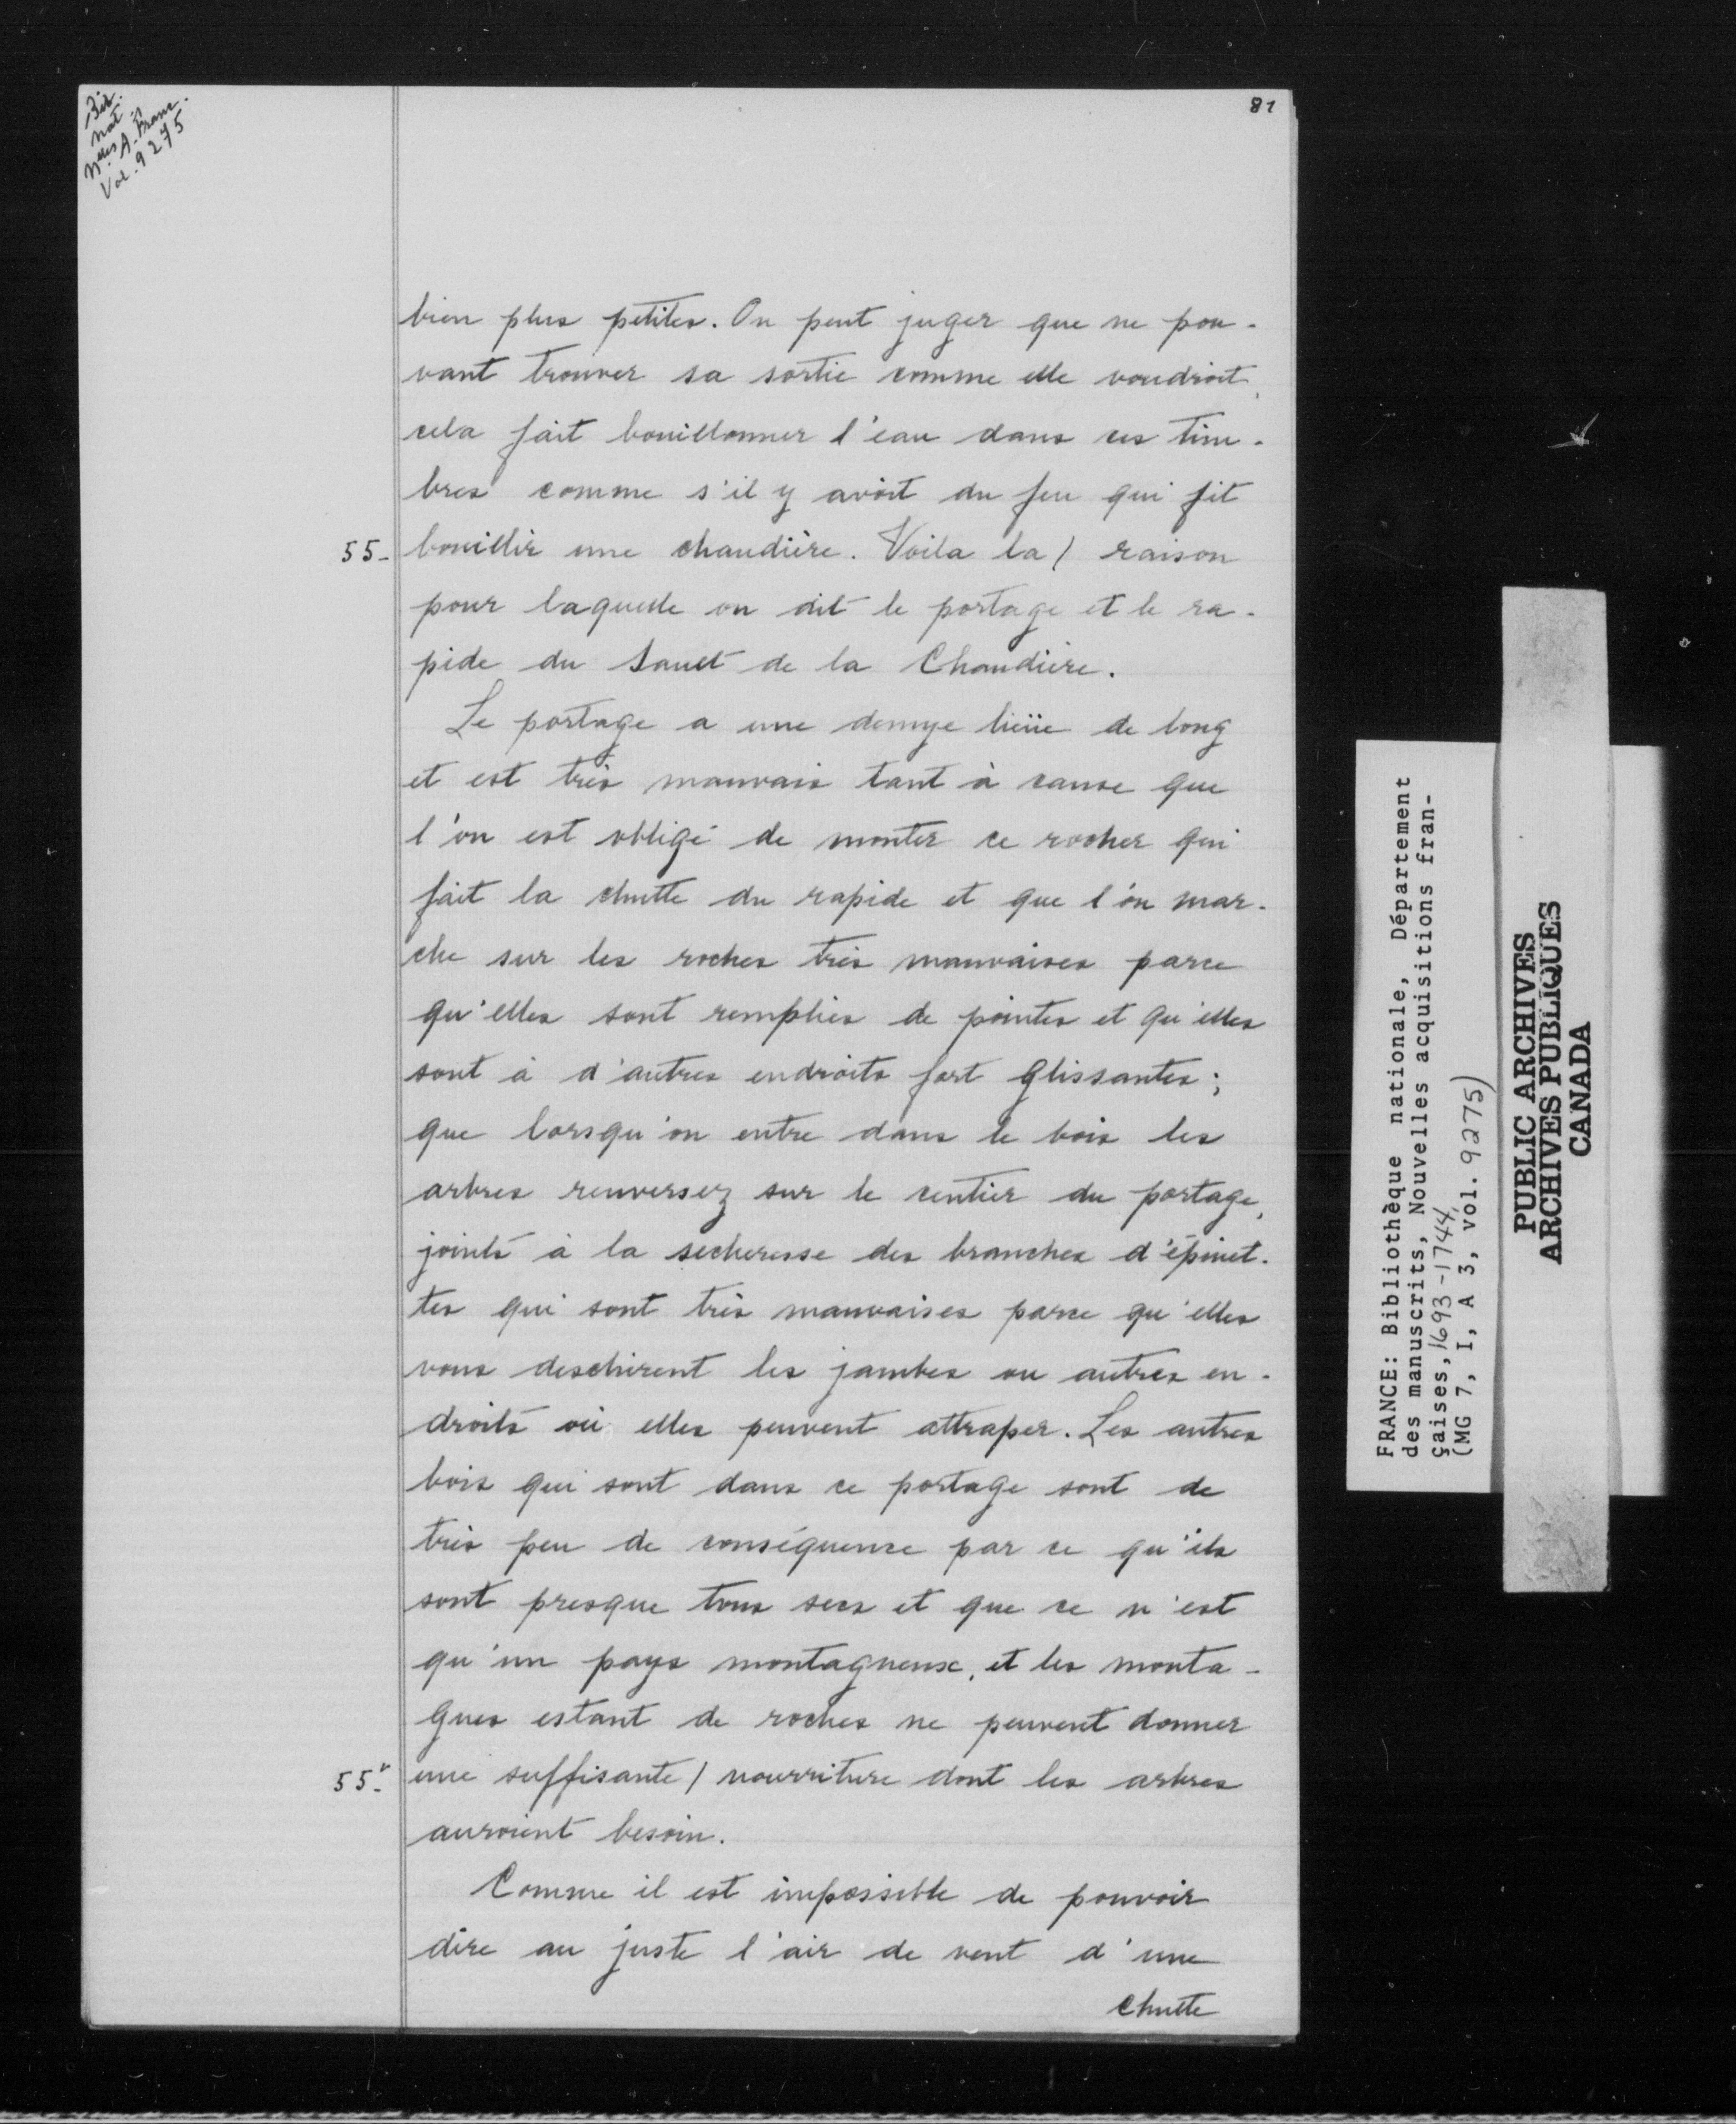 Bib.
nat.
nelles A. franç.
Vol. 9275
81
bien plus petites. On peut juger que ne pou-
vant trouver sa sortie comme elle voudroit,
cela fait bouillonner l'eau dans ces tim-
bres comme s'il y avoit du feu qui fit
55- bouillir une chaudière. Voila la / raison
pour laquelle on dit le portage et le ra-
pide du Sault de la Chaudière.
Le portage a une demye lieüe de long
et est très mauvais tant à cause que
l'on est obligé de monter ce rocher qui
fait la chutte du rapide et que l'on mar-
che sur les roches très mauvaises parce
qu'elles sont remplies de pointes et qu'elles
sont à d'autres endroits fort glissantes;
que lorsqu'on entre dans le bois les
arbres renversez sur le centier du portage,
joints à la secheresse des branches d'épinet-
tes qui sont très mauvaises parce qu'elles
vous deschirent les jambes ou autres en-
droits où elles peuvent attraper. Les autres
bois qui sont dans ce portage sont de
très peu de conséquence par ce qu'ils
sont presque tous secs et que ce n'est
qu'un pays montagneux, et les monta-
gnes estant de roches ne peuvent donner
55v- une suffisante / nourriture dont les arbres
auroient besoin.
Comme il est impossible de pouvoir
dire au juste l'air de vent d'une
chutte
FRANCE: Bibliothèque nationale, Département
des manuscrits, Nouvelles acquisitions fran-
çaises, 1693-1744
(MG 7, I, A 3, vol. 9275)
PUBLIC ARCHIVES
ARCHIVES PUBLIQUES
CANADA